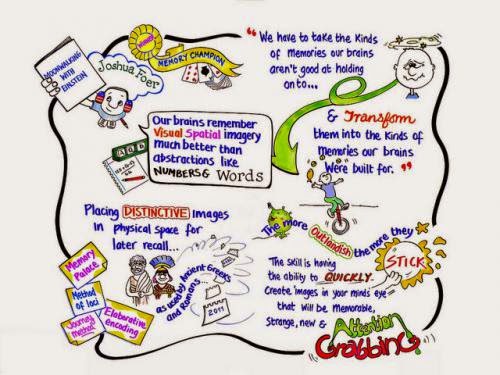 MOONWALKING
WITH
EINSTEIN
Joshua Foer
MEMORY CHAMPION
Our brains remember
Visual Spatial imagery
much better than
abstractions like
NUMBERS & Words
“We have to take the Kinds
of Memories our brains
aren't good at holding
onto...
& Transform
them into the Kinds of
Memories our Brains
Were built for.”
Placing DISTINCTIVE Images
in physical space for
later recall...
as used by Ancient Greeks
and Romans
2011
Memory
Palace
Method
of loci
Journey
method
Elaborative
encoding
The more
Outlandish
the more they
STICK
The Skill is having
the ability to QUICKLY
Create images in your minds eye
that will be memorable,
Strange, new &
Attention
Grabbing!